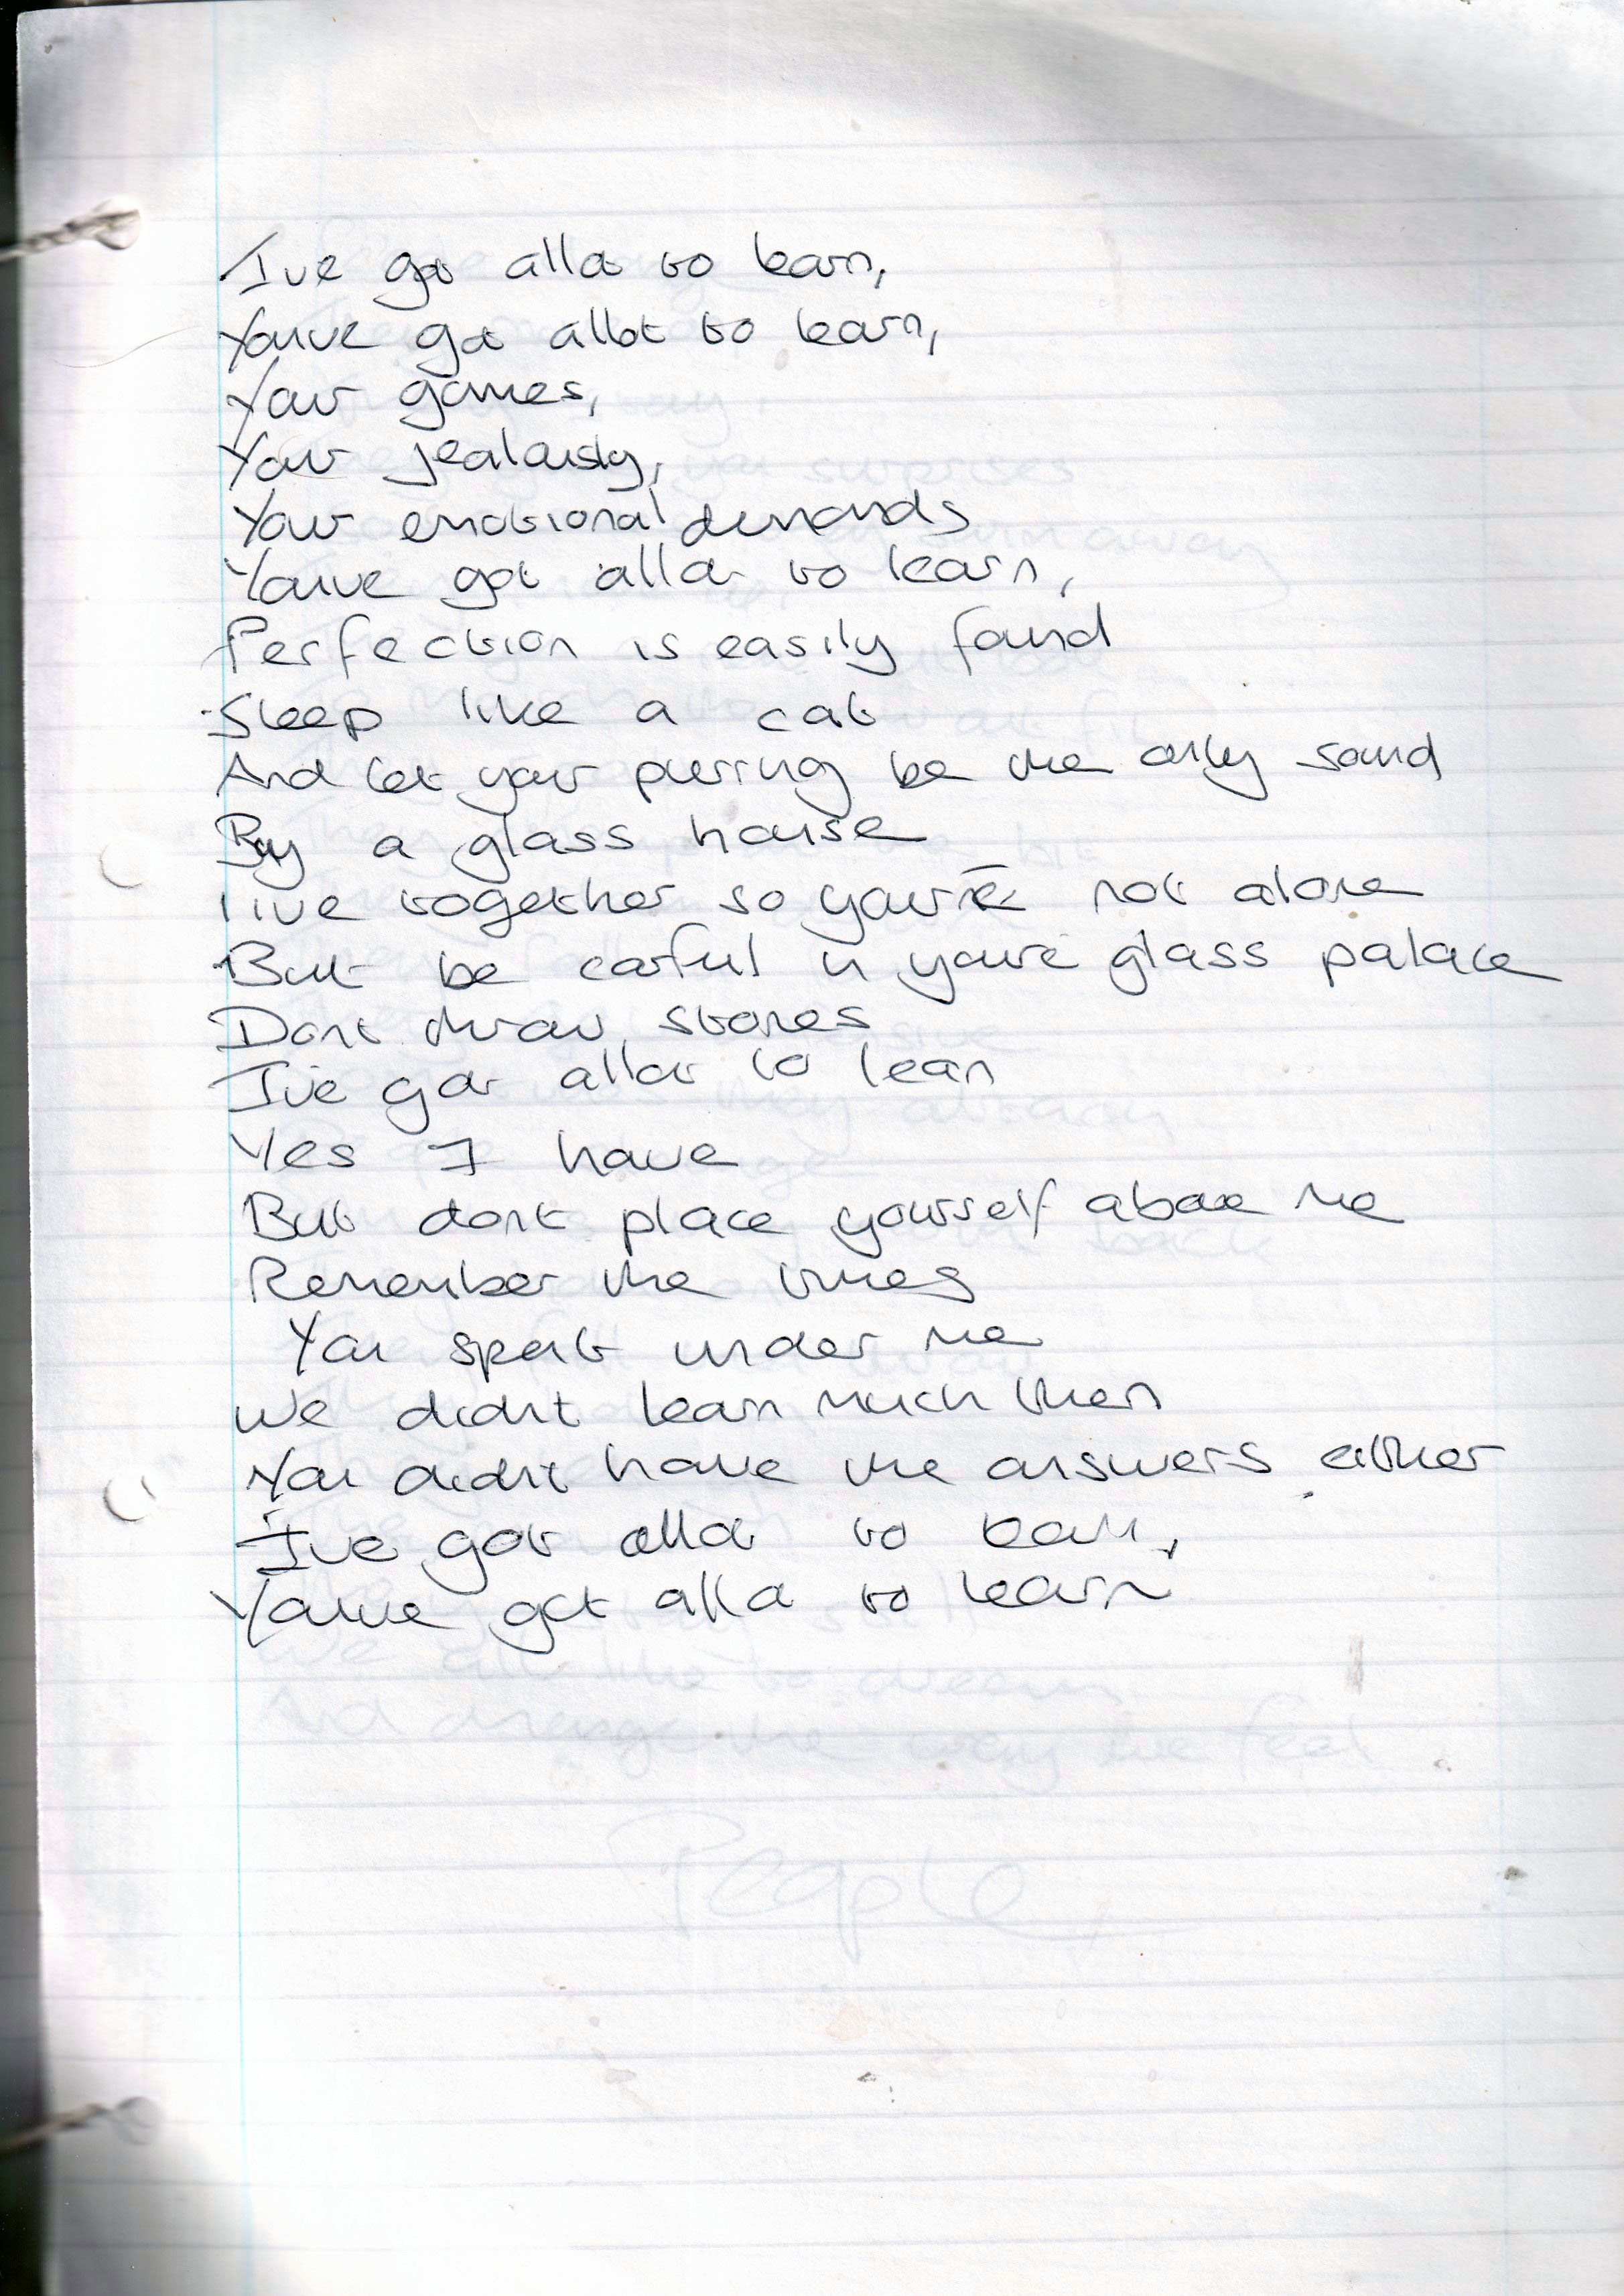 I've got allot to learn,
You've got allot to learn,
Your games,
Your jealousy,
Your emotional demands
You've got allot to learn,
Perfection is easily found
Sleep like a cat
And let your purring be the only sound
Buy a glass house
live together so you're not alone
But be carful in you're glass palace
Dont throw stones
I've got allot to lean
Yes I have
But dont place yourself above me
Remember the times
You spent under me
We didnt learn much then
You didnt have the answers either
I've got allot to learn,
You've got allot to learn
We all like to dream
And change the way we feel
People